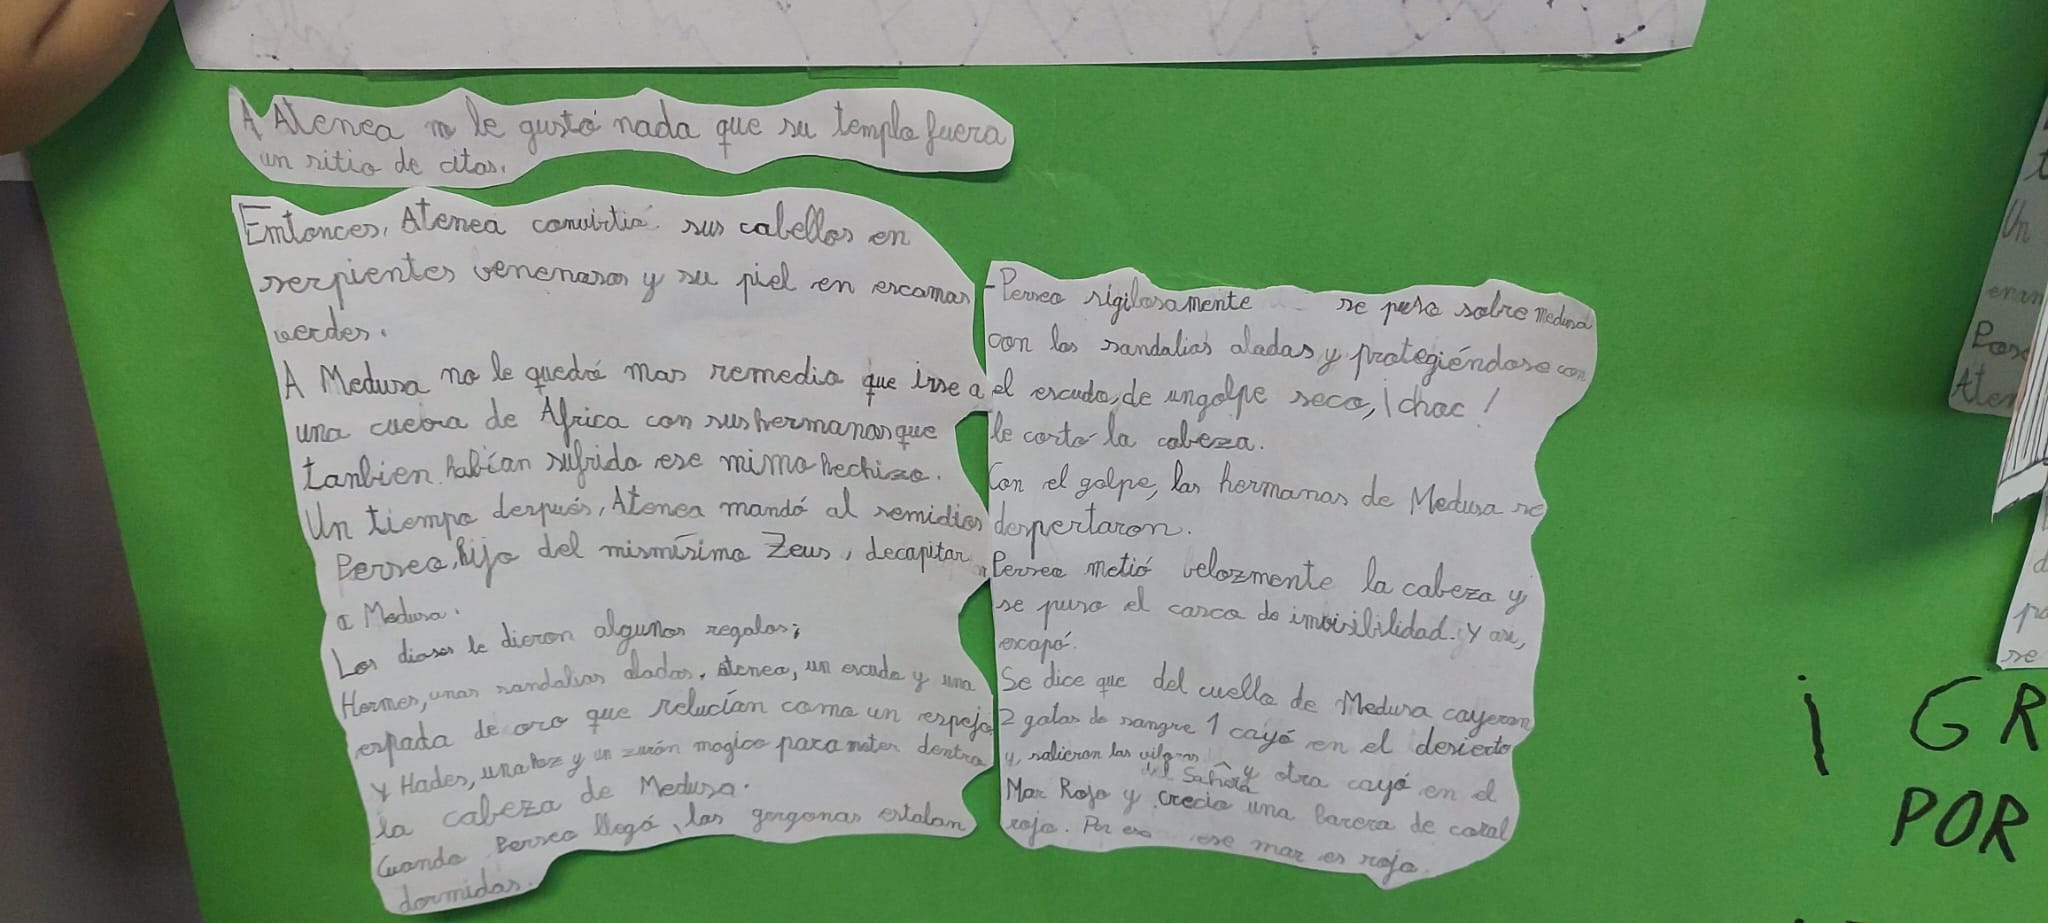 A Atenea no le gustó nada que su templo fuera
un sitio de citas.
Entonces, Atenea convirtió sus cabellos en
serpientes venenosas y su piel en escamas
verdes.
A Medusa no le quedó mas remedio que irse a
una cueva de África con sus hermanas que
tanbien habían sufrido ese mimo hechizo.
Un tiempo después, Atenea mandó al semidios
Perseo, hijo del mismísimo Zeus, decapitar
a Medusa.
Los dioses le dieron algunos regalos;
Hermes, unas sandalias aladas, Atenea, un escudo y una
espada de oro que relucían como un espejo
y Hades, una hoz y un zurón magico para meter dentro
la cabeza de Medusa.
Cuando Perseo llegó, las gorgonas estaban
dormidas.
-Perseo sigilosamente se puso sobre Medusa
con las sandalias aladas y protegiéndose con
el escudo, de un golpe seco, ¡chac!
le corto la cabeza.
Con el golpe, las hermanas de Medusa se
despertaron.
Perseo metió velozmente la cabeza y
se puso el casco de invisibilidad. Y asi,
escapó.
Se dice que del cuello de Medusa cayeron
2 gotas de sangre 1 cayó en el desierto
del Sahara
y, salieron las viboras y otra cayó en el
Mar Rojo y crecio una barera de coral
rojo. Por eso ese mar es rojo.
Un
Pos
Aten
se
¡GR
POR